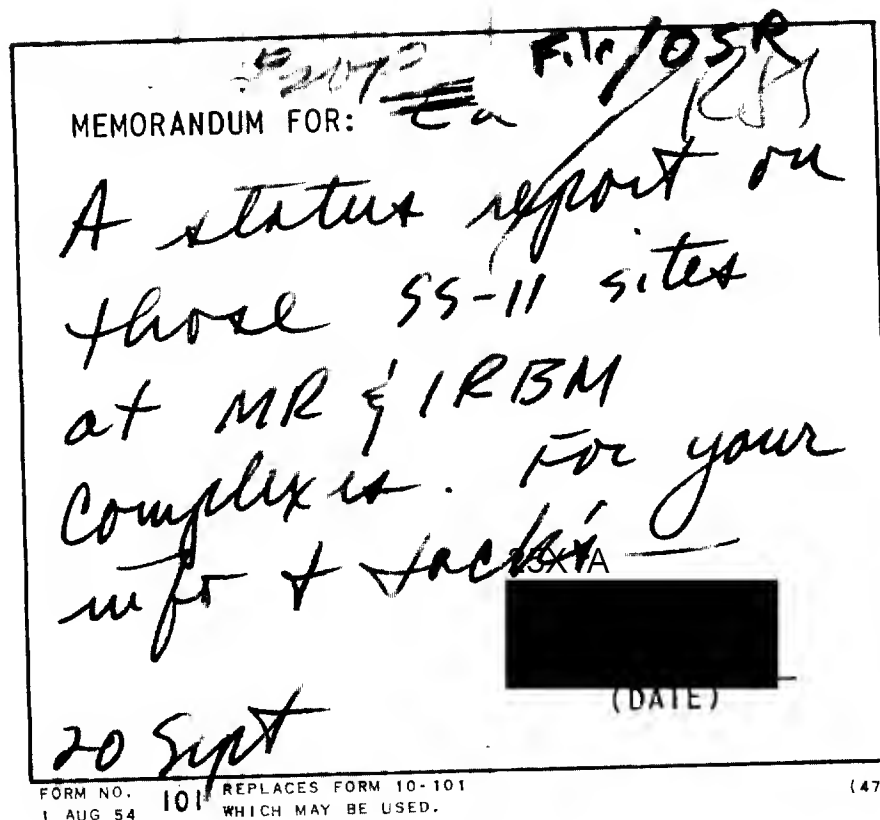 File/OSR
MEMORANDUM FOR:
A status report on
those SS-11 sites
at MR & IRBM
Complexes. For your
info + Jack's
25X1A
(DATE)
20 Sept
FORM NO. 101 REPLACES FORM 10-101 (47
1 AUG 54 WHICH MAY BE USED.